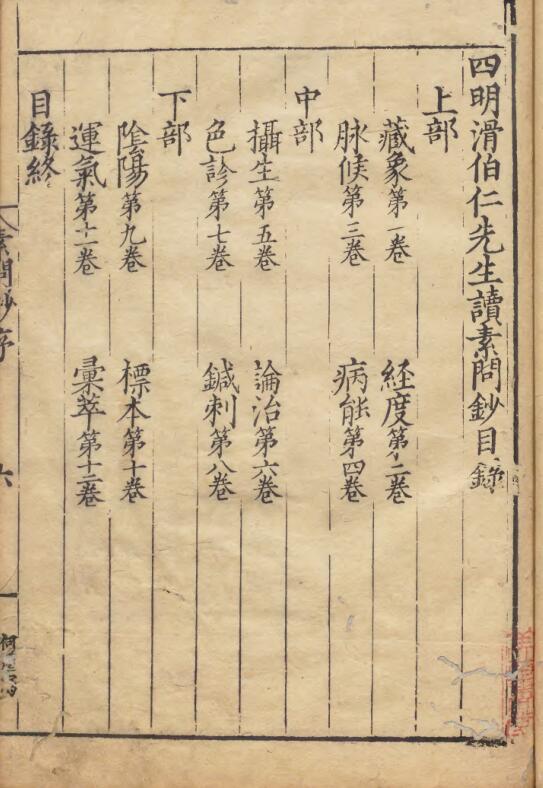 四明滑伯仁先生讀素問鈔目錄
上部
藏象第一卷 經度第二卷
脉候第三卷 病能第四卷
中部
攝生第五卷 論治第六卷
色診第七卷 鍼刺第八卷
下部
陰陽第九卷 標本第十卷
運氣第十一卷 彙萃第十二卷
目錄終
素問鈔序 六